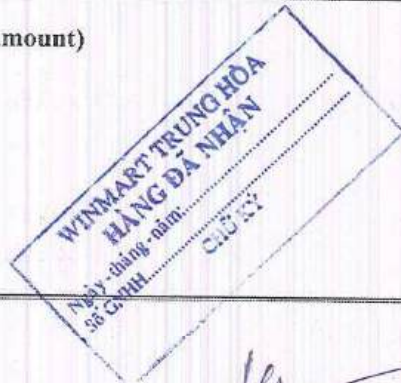 mount)
WINMART TRUNG HÒA
HÀNG ĐÃ NHẬN
Ngày-tháng-năm
Số GNHH
CHỮ KÝ